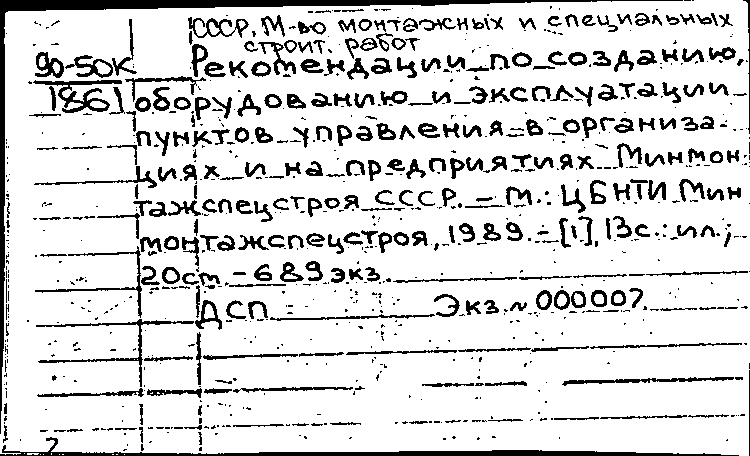 СССР, М-во монтажных и специальных
строит. работ
90-50К Рекомендации по созданию,
1861 оборудованию и эксплуатации
пунктов управления в организа-
циях и на предприятиях Минмон
тажспецстроя СССР. – М.: ЦБНТИ Мин
монтажспецстроя, 1989. – [1], 13с.: ил.;
20см. – 689 экз.
ДСП Экз. № 000007